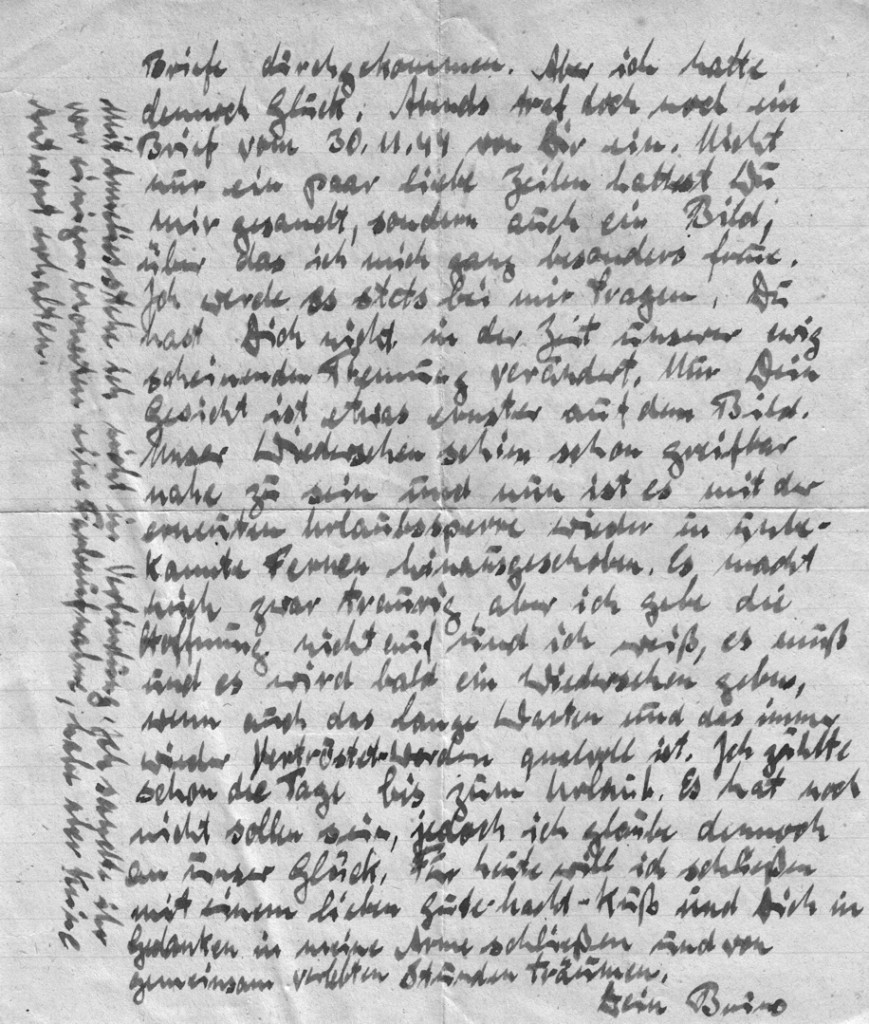 Briefe durchgekommen. Aber ich hatte
dennoch Glück. Abends traf doch noch ein
Brief vom 30.11.44 von Dir ein. Nicht
nur ein paar liebe Zeilen hattest Du
mir gesandt, sondern auch ein Bild,
über das ich mich ganz besonders freue.
Ich werde es stets bei mir tragen. Du
hast Dich nicht in der Zeit unserer ewig
scheinenden Trennung verändert. Nur Dein
Gesicht ist etwas ernster auf dem Bild.
Unser Wiedersehen schien schon greifbar
nahe zu sein und nun ist es mit der
erneuten Urlaubssperre wieder in unbe-
kannte Fernen hinausgeschoben. Es macht
mich zwar traurig, aber ich gebe die
Hoffnung nicht auf und ich weiß, es muß
und es wird bald ein Wiedersehen geben,
wenn auch das lange Warten und das immer
wieder Vertröstet-werden qualvoll ist. Ich zählte
schon die Tage bis zum Urlaub. Es hat noch
nicht sollen sein, jedoch ich glaube dennoch
an unser Glück. Für heute will ich schließen
mit einem lieben Gute-Nacht-Kuß und Dich in
Gedanken in meine Arme schließen und von
gemeinsam verlebten Stunden träumen.
Dein Bruno
Mit Annelies stehe ich nicht in Verbindung, ich sandte ihr
vor einigen Monaten eine Farbaufnahme, habe aber keine
Antwort erhalten.